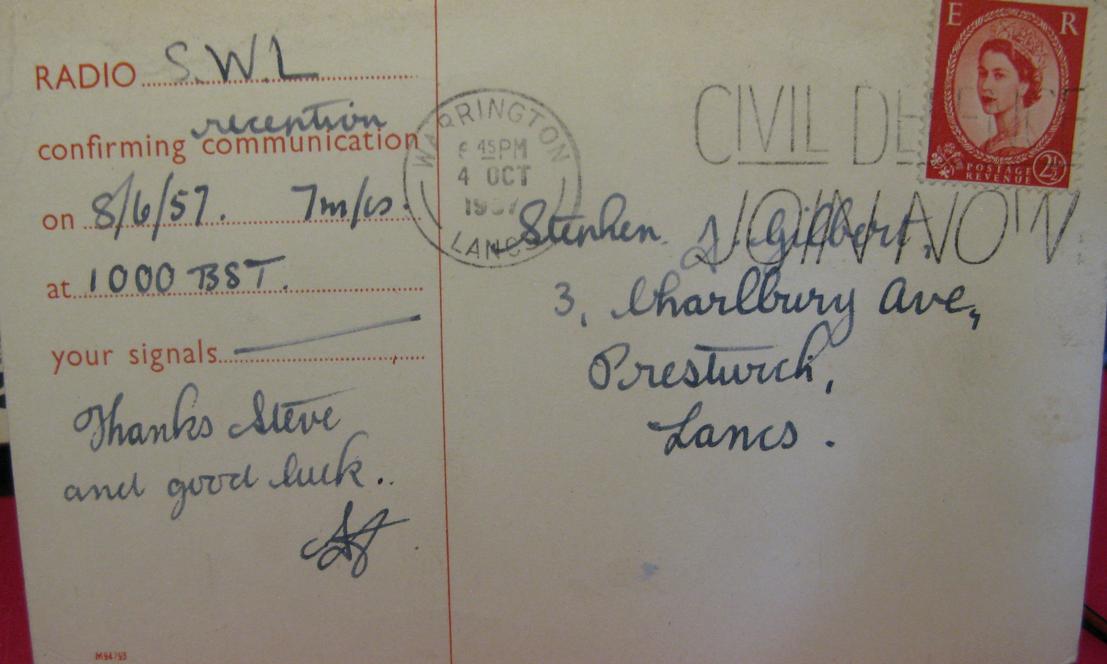 RADIO S.W.L
reception
confirming communication
on 8/6/57. 7m/cs.
at 1000 BST.
your signals
Thanks Steve
and good luck..
M94793
WARRINGTON
6 45PM
4 OCT
1957
LANCS
CIVIL DEFENCE
JOIN NOW
E R
POSTAGE
REVENUE
2½
Stephen J. Gilbert,
3, Charlbury Ave,
Prestwich,
Lancs.